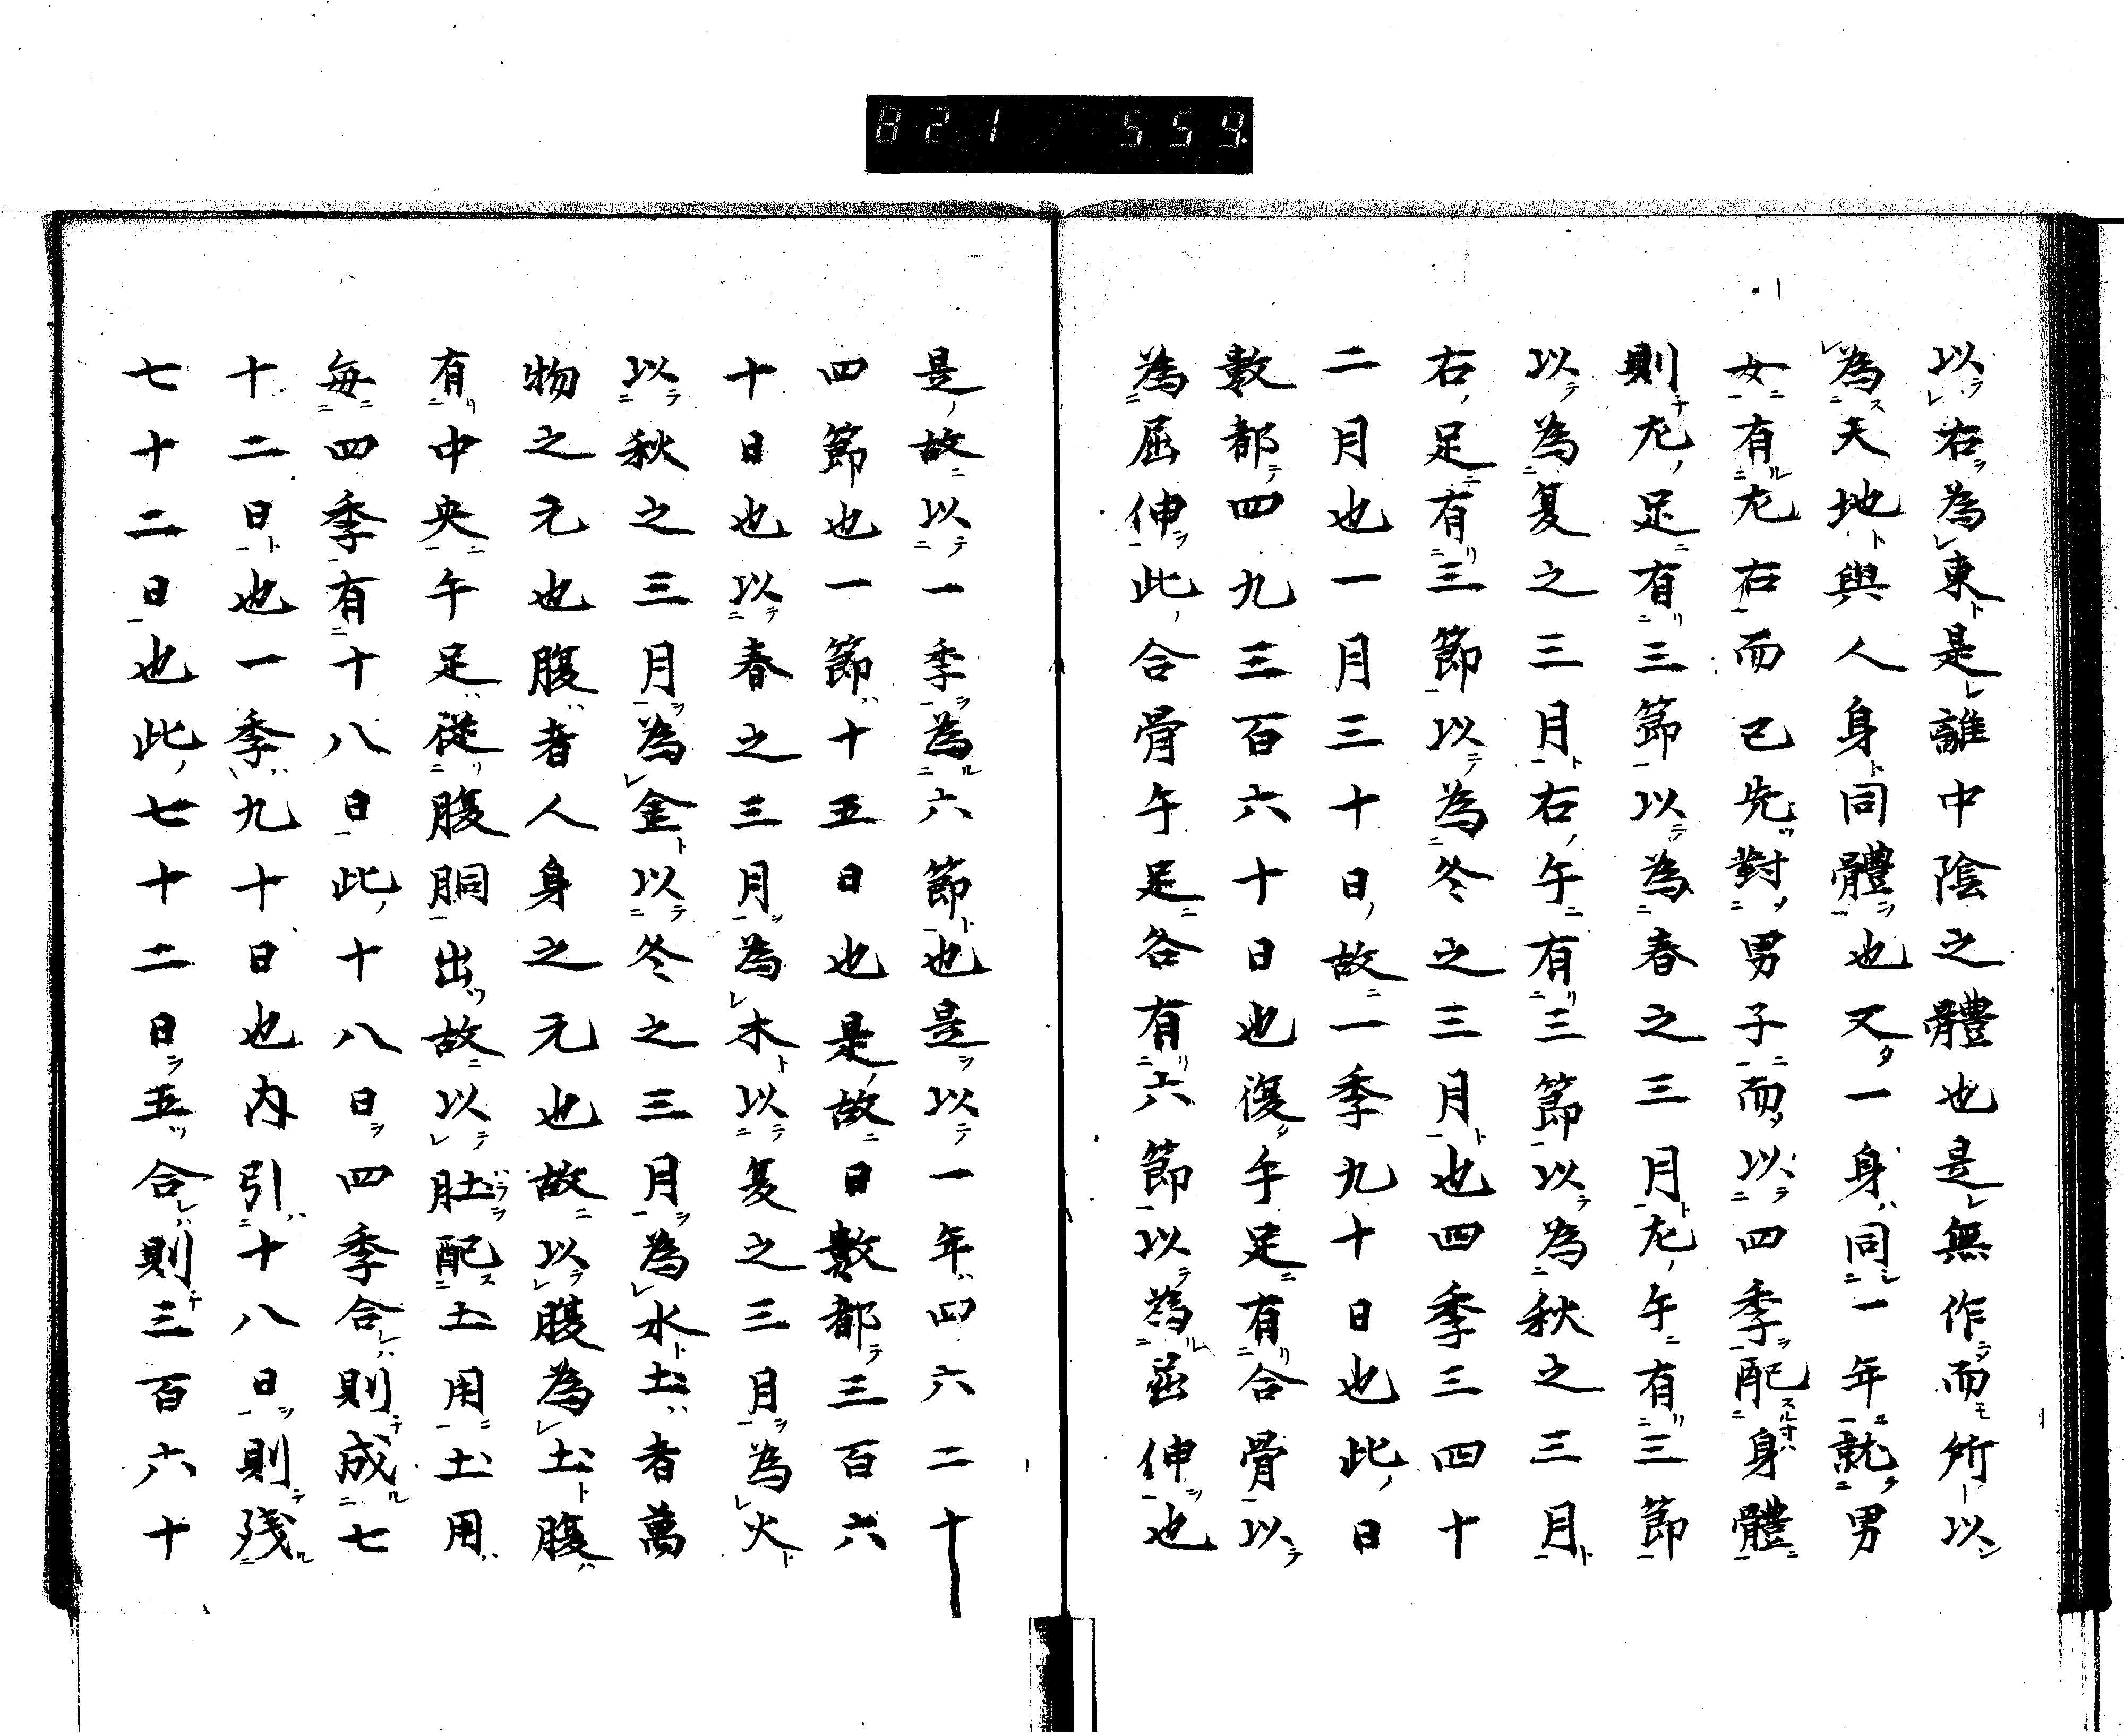 821 559
以右為東是離中陰之體也是無作而所以
為天地與人身同體也又一身同一年就男
女有左右而已先對男子而以四季配身體
則左足有三節以為春之三月左手有三節
以為夏之三月右手有三節以為秋之三月
右足有三節以為冬之三月也四季三四十
二月也一月三十日故一季九十日也此日
數都四九三百六十日也復手足有合骨以
為屈伸此合骨手足各有六節以為屈伸也
是故以一季為六節也是以一年四六二十
四節也一節十五日也是故日數都三百六
十日也以春之三月為木以夏之三月為火
以秋之三月為金以冬之三月為水土者萬
物之元也腹者人身之元也故以腹為土腹
有中央手足從腹胴出故以肚配土用土用
毎四季有十八日此十八日四季合則成七
十二日也一季九十日也内引十八日則残
七十二日也此七十二日五合則三百六十